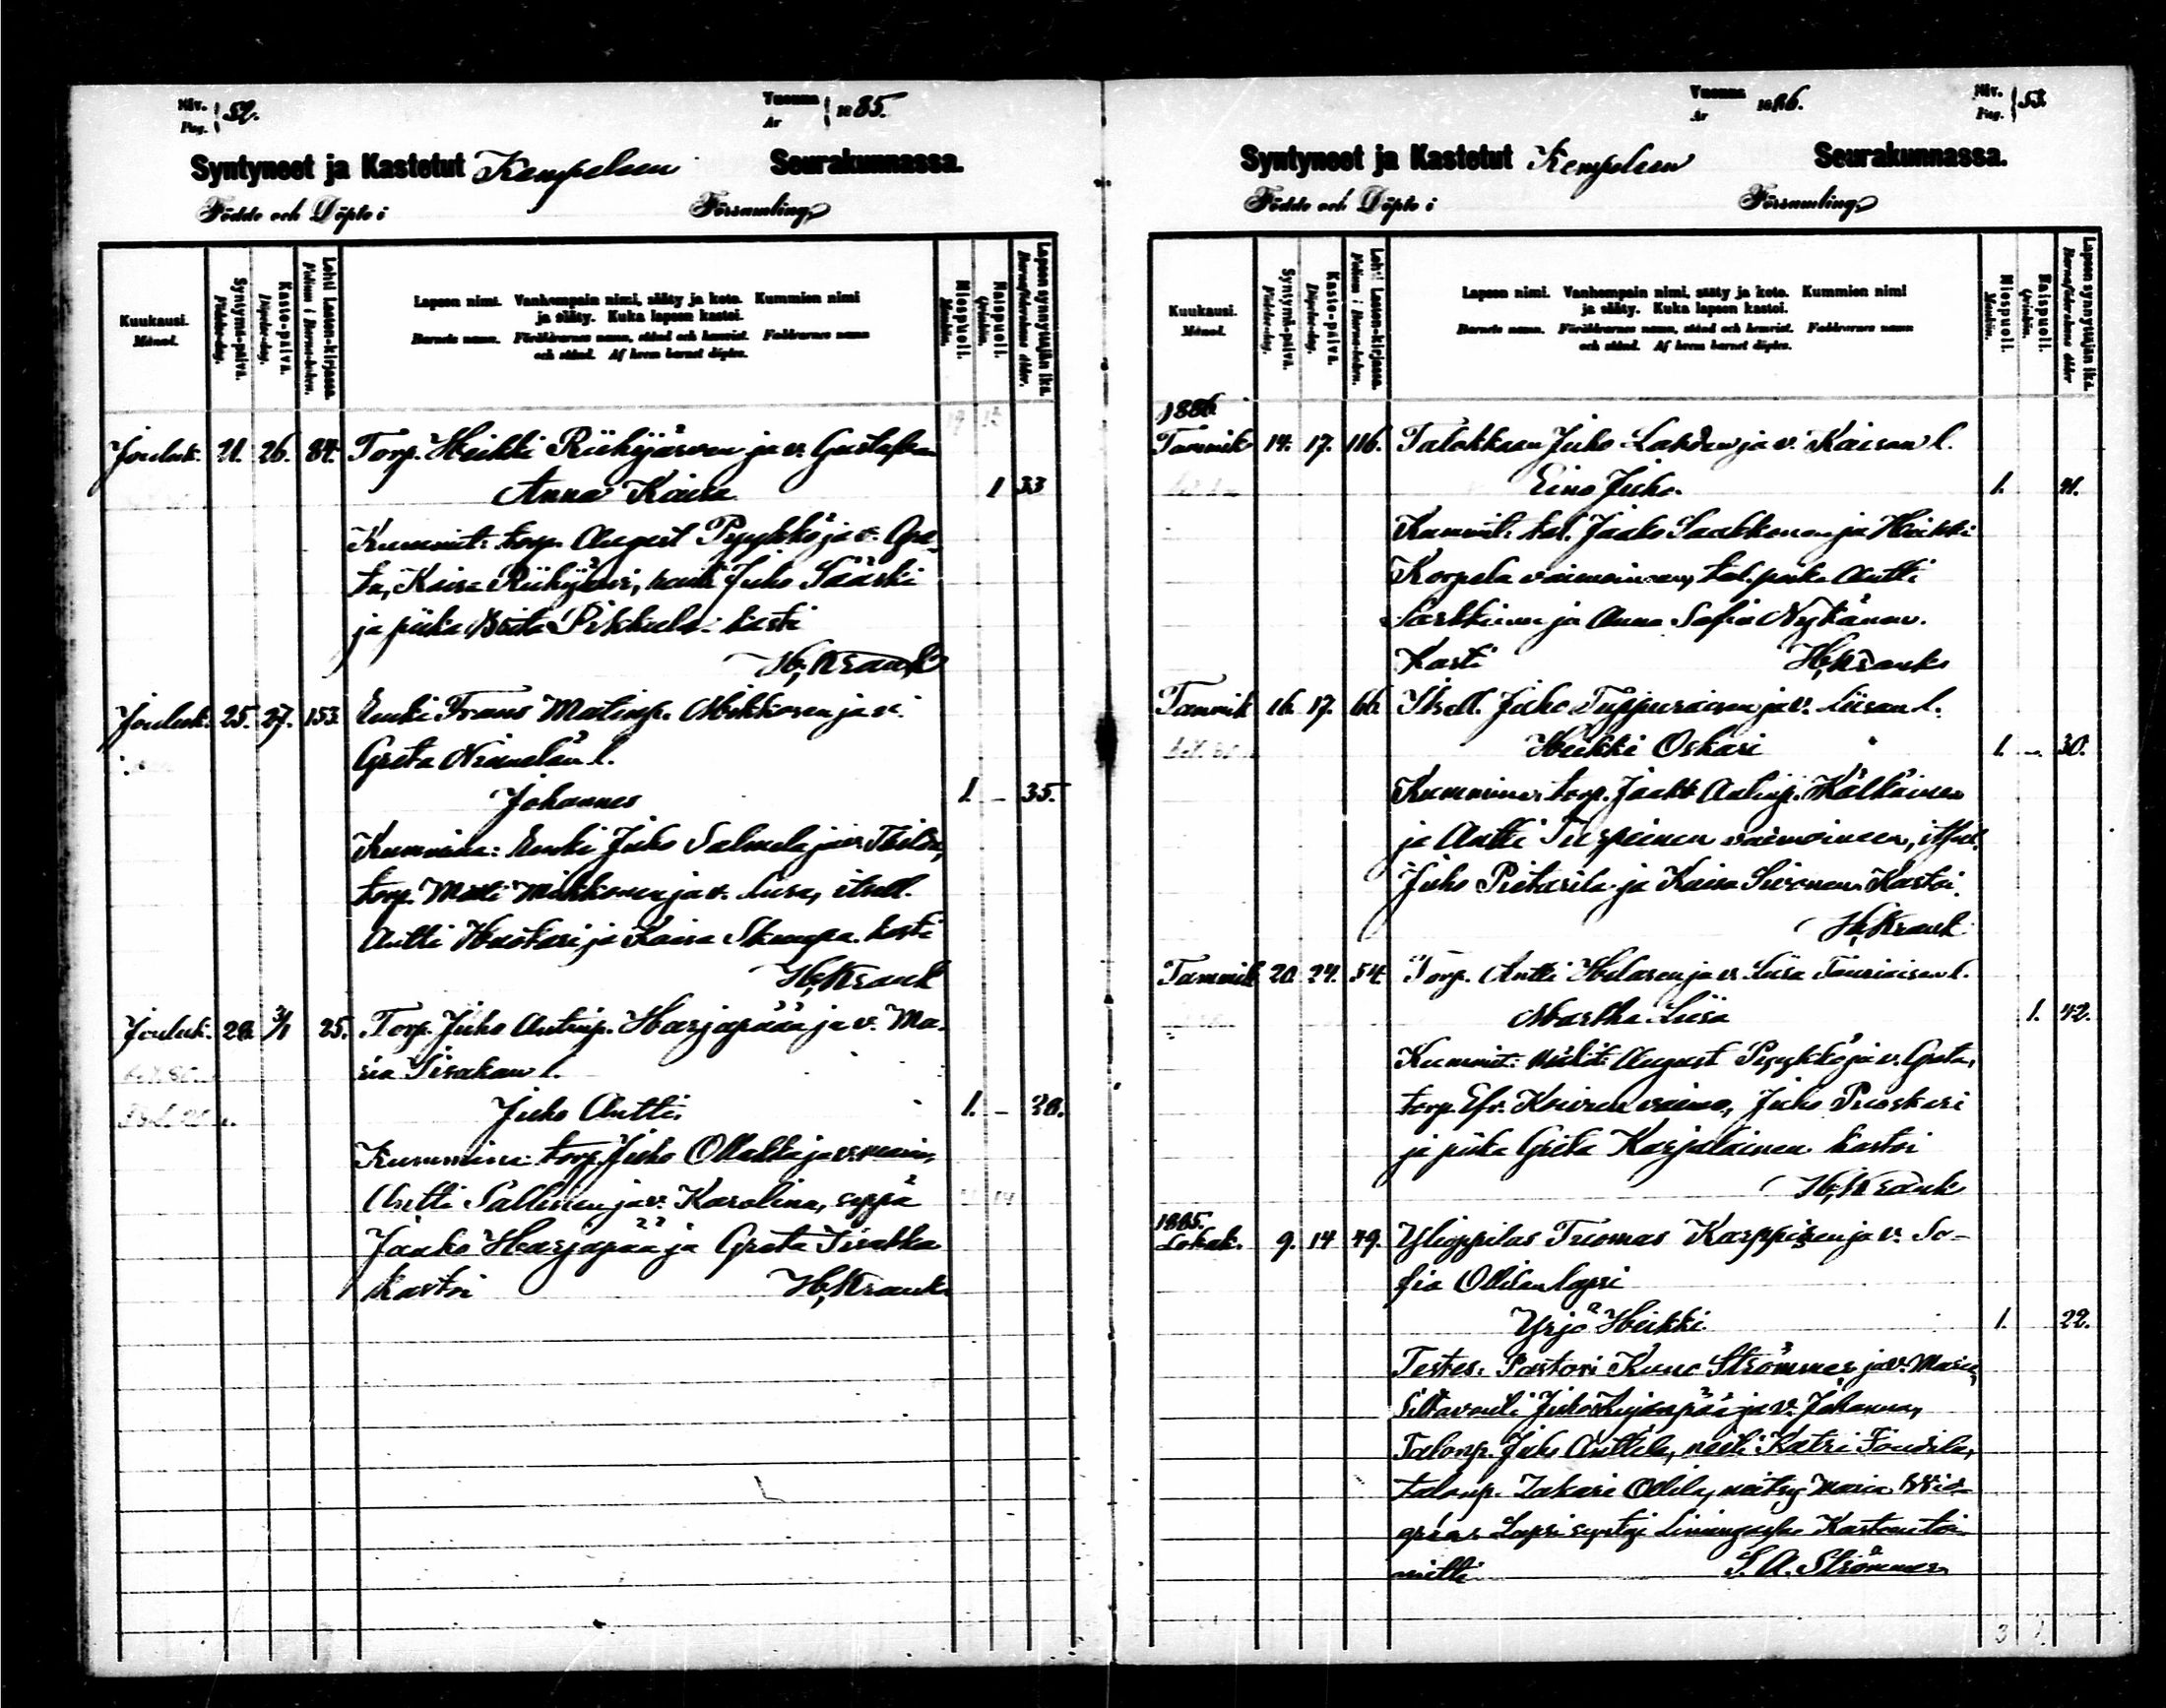 Siv. Pag. 52.
Vuonna År 1885.
Syntyneet ja Kastetut Kempeleen Seurakunnassa.
Födde och Döpte i Församling,
Kuukausi. Månad.
Syntymä-päivä. Födelse-dag.
Kaste-päivä. Döpelse-dag.
Lehti Lasten-kirjassa. Folium i Barna-boken.
Lapsen nimi. Vanhempain nimi, sääty ja koto. Kummien nimi
ja sääty. Kuka lapsen kastoi.
Barnets namn. Föräldrarnes namn, stånd och hemvist. Faddrarnes namn
och stånd. Af hvem barnet döptes.
Miespuoli. Mankön.
Naispuoli. Qvinkön.
Lapsen synnyttäjän ikä. Barnaföderskans ålder.
Jouluk. 21. 26. 84. Torp. Heikki Riihijärven ja v. Gustafva
Anna Kaisa 1 33
Kummit: torp. August Pyykkö ja v. Gre-
ta, Kaisa Riihijärvi, renki Juho Sääski
ja piika Brita Pikkula. kasti
H. Krank
Jouluk. 25. 27. 153. Renki Frans Matinp. Mikkosen ja v.
Greta Niemelän l.
Johannes 1. – 35.
Kummina: Renki Juho Salmela ja v. Thilda,
torp. Matti Mikkonen ja v. Liisa, itsell.
Antti Huotari ja Kaisa Skumpa. kasti
H. Krank
Jouluk. 28. 3/1 25. Torp. Juho Antinp. Harjapään ja v. Ma-
ria Sirakan l.
Juho Antti. 1. –
Kummina: torp. Juho Ollakka ja v. Maria,
Antti Sallinen ja v. Karolina, seppä
Jaako Harjapää ja Greta
kastoi H. Krank
Vuonna År 1886.
Siv. Pag. 53.
Syntyneet ja Kastetut Kempeleen Seurakunnassa.
Födde och Döpte i Församling,
Kuukausi. Månad.
Syntymä-päivä. Födelse-dag.
Kaste-päivä. Döpelse-dag.
Lehti Lasten-kirjassa. Folium i Barna-boken.
Lapsen nimi. Vanhempain nimi, sääty ja koto. Kummien nimi
ja sääty. Kuka lapsen kastoi.
Barnets namn. Föräldrarnes namn, stånd och hemvist. Faddrarnes namn
och stånd. Af hvem barnet döptes.
Miespuoli. Mankön.
Naispuoli. Qvinkön.
Lapsen synnyttäjän ikä. Barnaföderskans ålder
1886.
Tammik 14. 17. 116. Talokkaan Juho Lahden ja v. Kaisan l.
Eino Juho. 1.
Kummit: tal. Jaako Saakkonen ja Heikki
Korpela vaimoineen, tal. poika Antti
Sarkkinen ja Anna Sofia Nykänen.
Kasti H. Krank
Tammik 16. 17. 66. Itsell. Juho Tuppuraisen ja v. Liisan l.
Heikki Oskari 1. – 30.
Kummina torp. Jaako Antinp. Kälkäinen
ja Antti Turpeinen vaimoineen, itsel.
Juho Pietarila ja Kaisa Sivonen. Kastoi
H. Krank
Tammik 20. 24. 54. Torp. Antti Helasen ja v. Liisa Tauriaisen l.
Martha Liisa 1. 42.
Kummit: August Pyykkö ja v. Greta,
torp. vaimo, Juho Puoskari
ja piika Greta Karjalainen kastoi
H. Krank
1885.
Lokak. 9. 14 49. Ylioppilas Tuomas Karppisen ja v. So-
fia Ollilan lapsi
Yrjö Heikki. 1. 22.
Testes. Pastori Kuno Strömmer ja v. Maria,
Siltavouti Juho Kujanpää ja v. Johanna,
Talonp. Juho Anttila, neiti Katri Foudila,
talonp. Zakari Ollila, neitsy Maria Wid-
grén. Lapsi syntyi Limingassa. Kasteen toi-
mitti S. A. Strömmer
3 1